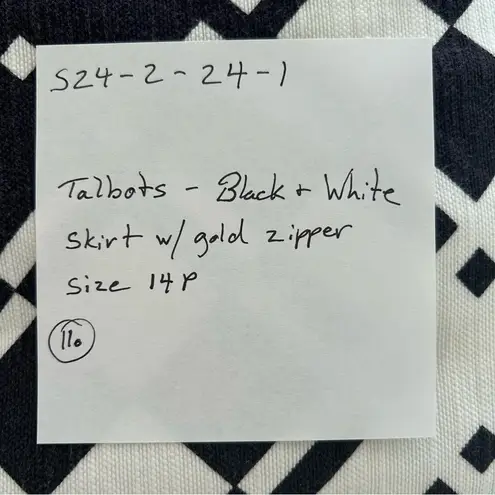 S24-2-24-1
Talbots - Black + White
skirt w/ gold zipper
size 14P
11.